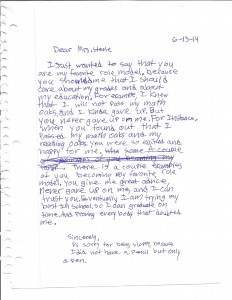 6-13-14
Dear Mrs. Steele
I Just wanted to say that you
are my favorite role model, because
you should me that I should
care about my grades and about
my education. For example, I knew
that I will not pass my math
oaks and I kinda gave up. But
you never gave up on me. For Instance,
when you found out that I
Passed my math oaks and my
reading oaks you were so excited and
happy for me.
There is a couple examples
of you becoming my favorite role
model. You give me great advice,
never gave up on me, and I can
trust you. Eventually I am trying my
best in school, so I can graduate on
time. And proving every body that doubted
me.
Sincerely,
Ps sorry for being sloppy because
I did not have a pencil but only
a pen.